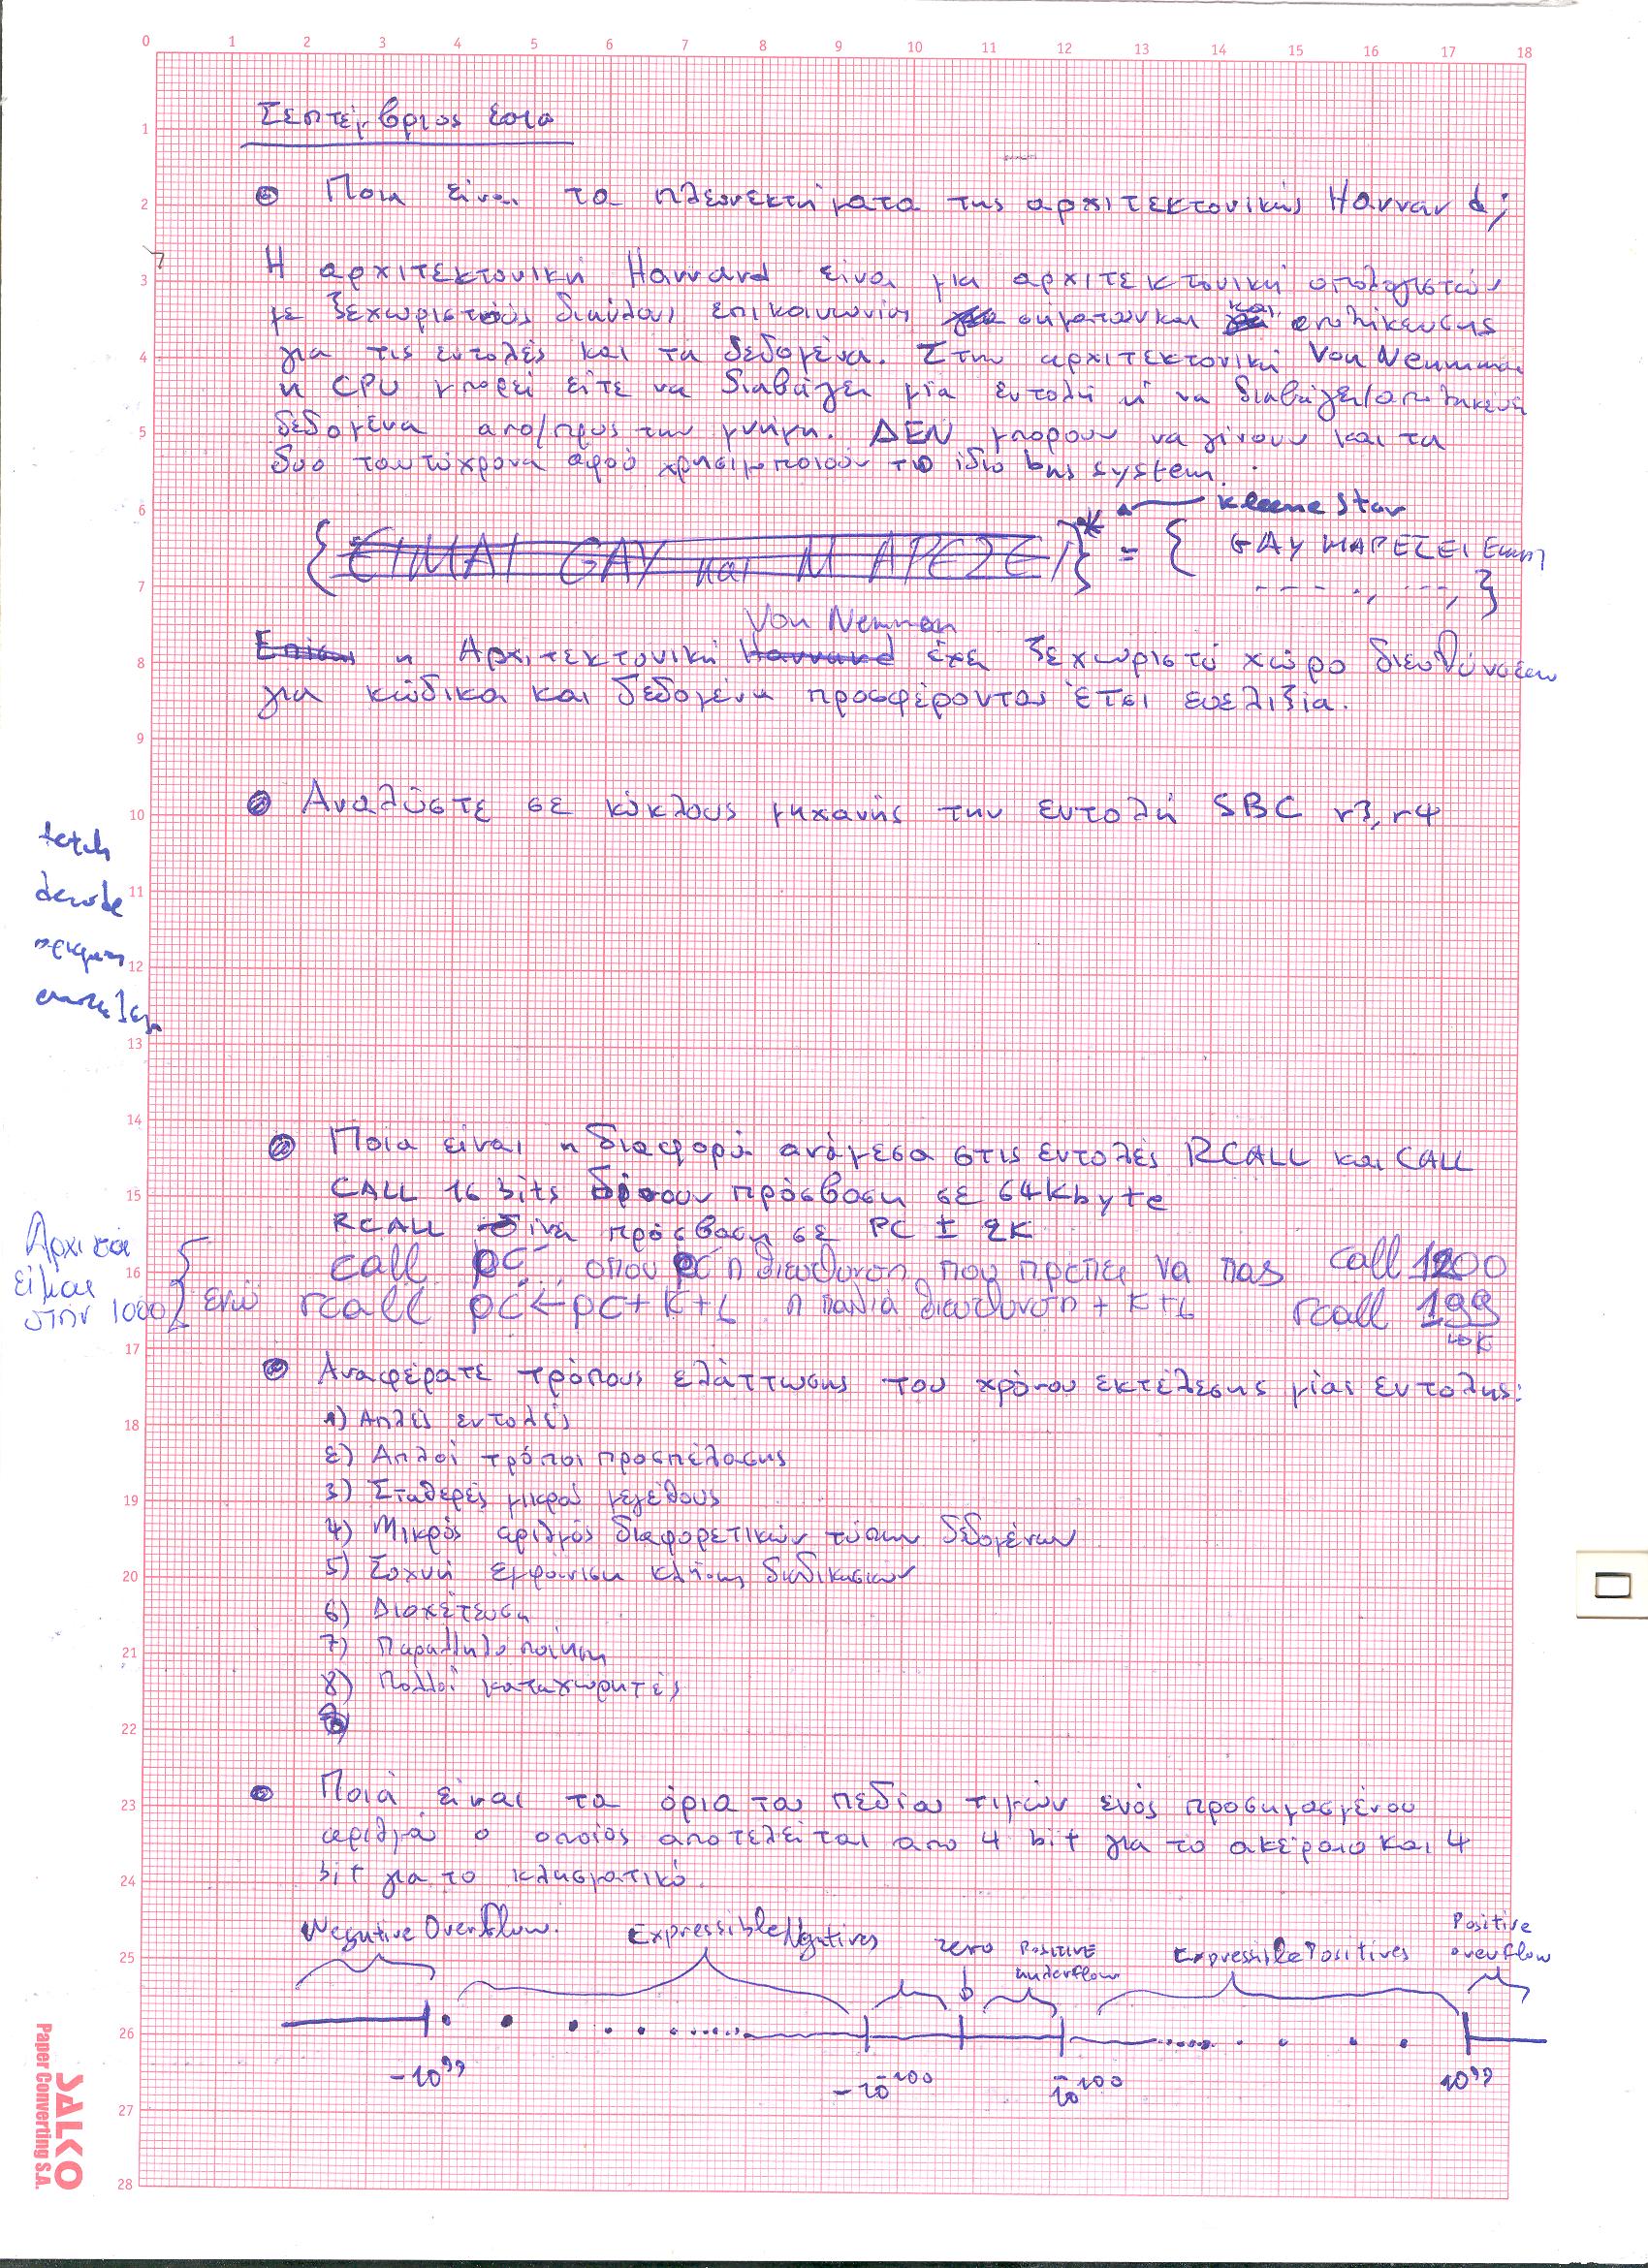 0 1 2 3 4 5 6 7 8 9 10 11 12 13 14 15 16 17 18
Σεπτέμβριος 2010
Ποια είναι τα πλεονεκτήματα της αρχιτεκτονικής Harvard;
Η αρχιτεκτονική Harvard είναι μια αρχιτεκτονική υπολογιστών
με ξεχωριστούς διαύλους επικοινωνίας σημάτων και αποθήκευσης
για τις εντολές και τα δεδομένα. Στην αρχιτεκτονική Von Neumman
η CPU μπορεί είτε να διαβάζει μία εντολή ή να διαβάζει/αποθηκευει
δεδομένα από/προς την μνήμη. ΔΕΝ μπορουν να γίνουν και τα
δυο ταυτόχρονα αφού χρησιμοποιούν το ίδιο bus system.
Kleene Star
{ΕΙΜΑΙ GAY και Μ ΑΡΕΣΕΙ}* = { GAY ΜΑΡΕΣΕΙ
- - - - . , - - , }
Von Neuman
Επίσης η Αρχιτεκτονική Harvard έχει ξεχωριστό χώρο διευθύνσεων
για κώδικα και δεδομένα προσφέροντας έτσι ευελιξία.
Αναλύστε σε κύκλους μηχανής την εντολή SBC r3, r4
fetch
decode
Ποια είναι η διαφορά ανάμεσα στις εντολές RCALL και CALL
CALL 16 bits δίνουν πρόσβαση σε 64Kbyte
RCALL δίνει πρόσβαση σε PC ± 2K
Αρχικα
είμαι
στην 1000
call pc όπου pc η διευθυνση που πρέπει να πας call 1200
ενώ rcall pc ← pc+k+1 η παλιά διευθυνση + k+1 rcall 199
το k
Αναφέρατε τρόπους ελάττωσης του χρόνου εκτέλεσης μίας εντολης:
1) Απλές εντολές
2) Απλοί τρόποι προσπέλασης
3) Σταθερές μικρού μεγέθους
4) Μικρός αριθμός διαφορετικών τύπων δεδομένων
5) Συχνή εμφάνιση κλήσης διαδικασιών
6) Διοχέτευση
7) Παραλληλοποίηση
8) Πολλοί καταχωρητές
Ποιά είναι τα όρια του πεδίου τιμών ενός προσημασμένου
αριθμού ο οποίος αποτελείται από 4 bit για το ακέραιο και 4
bit για το κλασματικό.
Negative Overflow. Expressible Negatives zero Positive underflow Expressible Positives Positive overflow
-10^99 -10^-100 10^-100 10^99
1
2
3
4
5
6
7
8
9
10
11
12
13
14
15
16
17
18
19
20
21
22
23
24
25
26
27
28
SALKO
Paper Converting S.A.